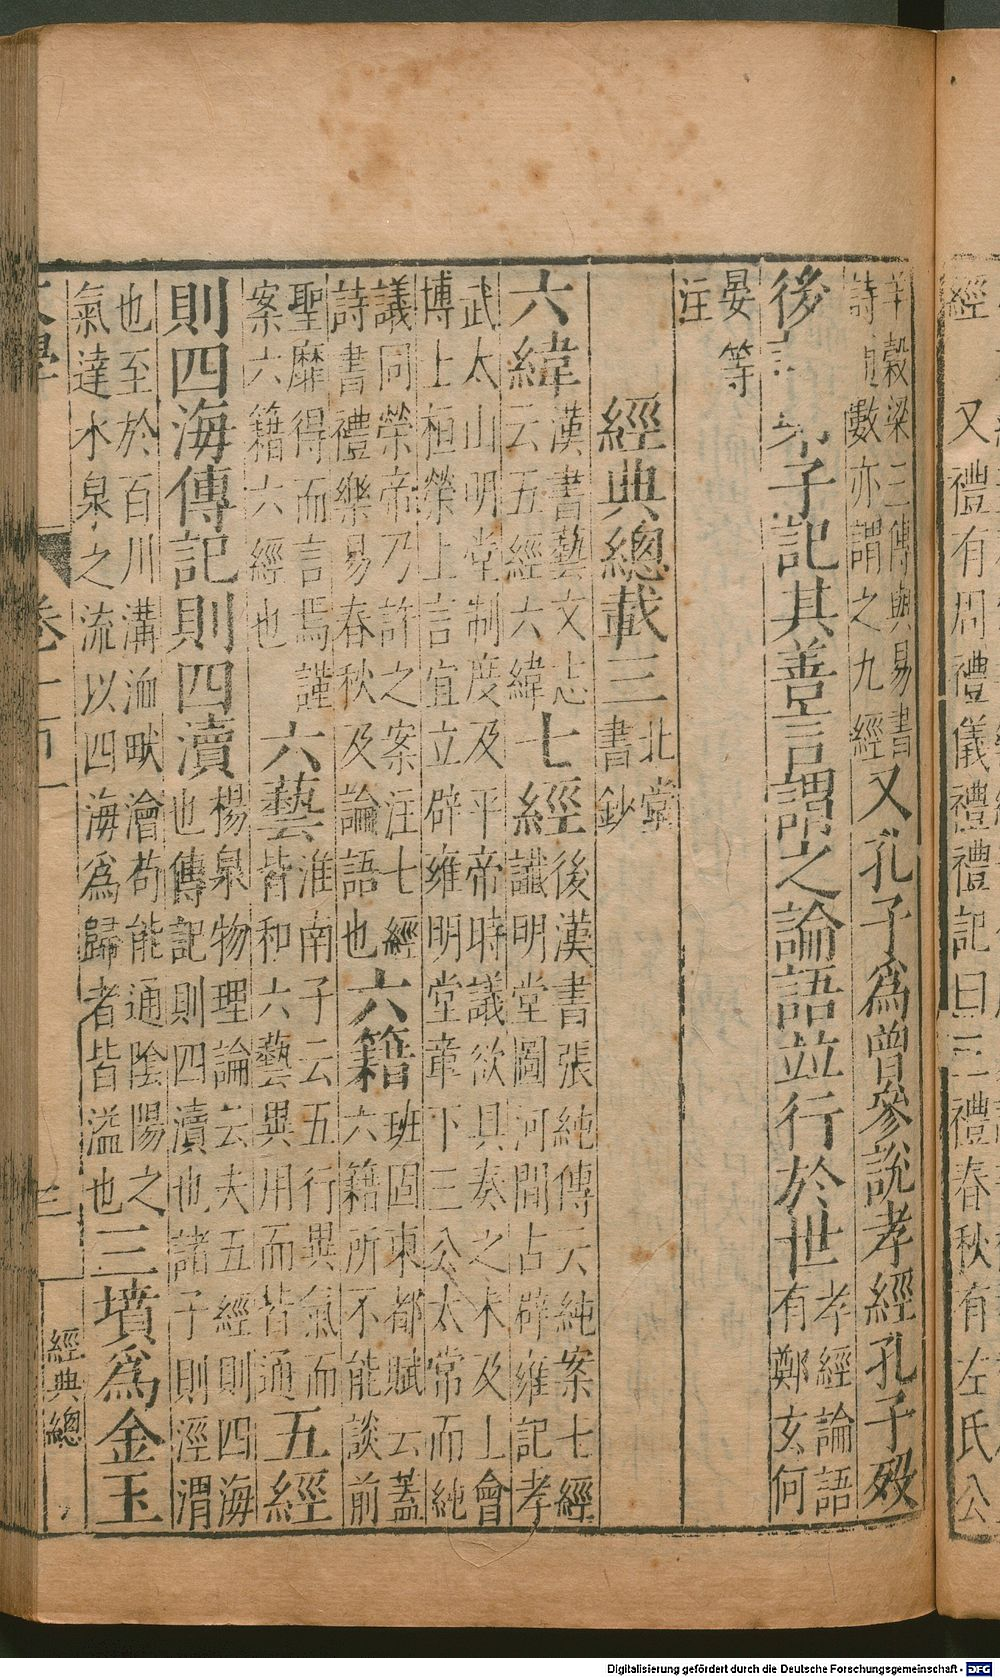 經 又禮有周禮儀禮禮記曰三禮春秋有左氏公
羊穀梁三傳與易書
詩 數亦謂之九經
又孔子為曾參說孝經孔子歿
後 弟子記其善言謂之論語並行於世
孝經論語
有鄭玄何
晏等
注
經典總載三
北堂
書鈔
六緯
漢書藝文志
云五經六緯
七經
後漢書張純傳云純案七經
讖明堂圖河間古辟雍記孝
武太山明堂制度及平帝時議欲具奏之未及上會
博士桓榮上言宜立辟雍明堂章下三公太常而純
議同榮帝乃許之案注七經
詩書禮樂易春秋及論語也
六籍
班固東都賦云蓋
六籍所不能談前
聖靡得而言焉謹
案六籍六經也
六藝
淮南子云五行異氣而
皆和六藝異用而皆通
五經
則四海傳記則四瀆
楊泉物理論云夫五經則四海
也傳記則四瀆也諸子則涇渭
也至於百川溝洫畎澮苟能通陰陽之
氣達水泉之流以四海為歸者皆溢也
三墳為金玉
三
經典總
Digitalisierung gefördert durch die Deutsche Forschungsgemeinschaft - DFG